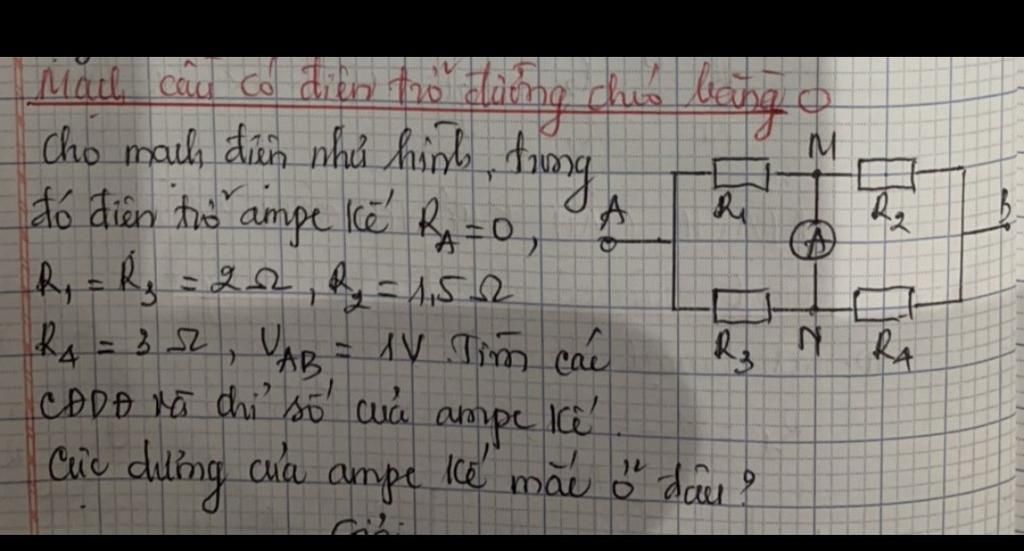 Mạch cầu có điện trở đường chéo bằng 0
Cho mạch điện như hình, trong
đó điện trở ampe kế R_A = 0,
R₁ = R₃ = 2 Ω, R₂ = 1,5 Ω
R₄ = 3 Ω, U_AB = 1V. Tìm các
CĐDĐ và chỉ số của ampe kế.
Cực dương của ampe kế mắc ở đâu?
M
R₁
R₂
A
A
B
R₃
N
R₄